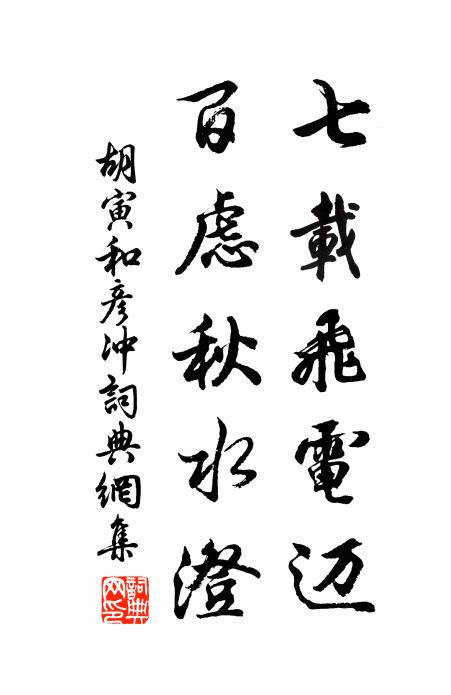 七載飛電迈
百慮秋水澄
胡寅和彦冲詞典網集
詞典网印